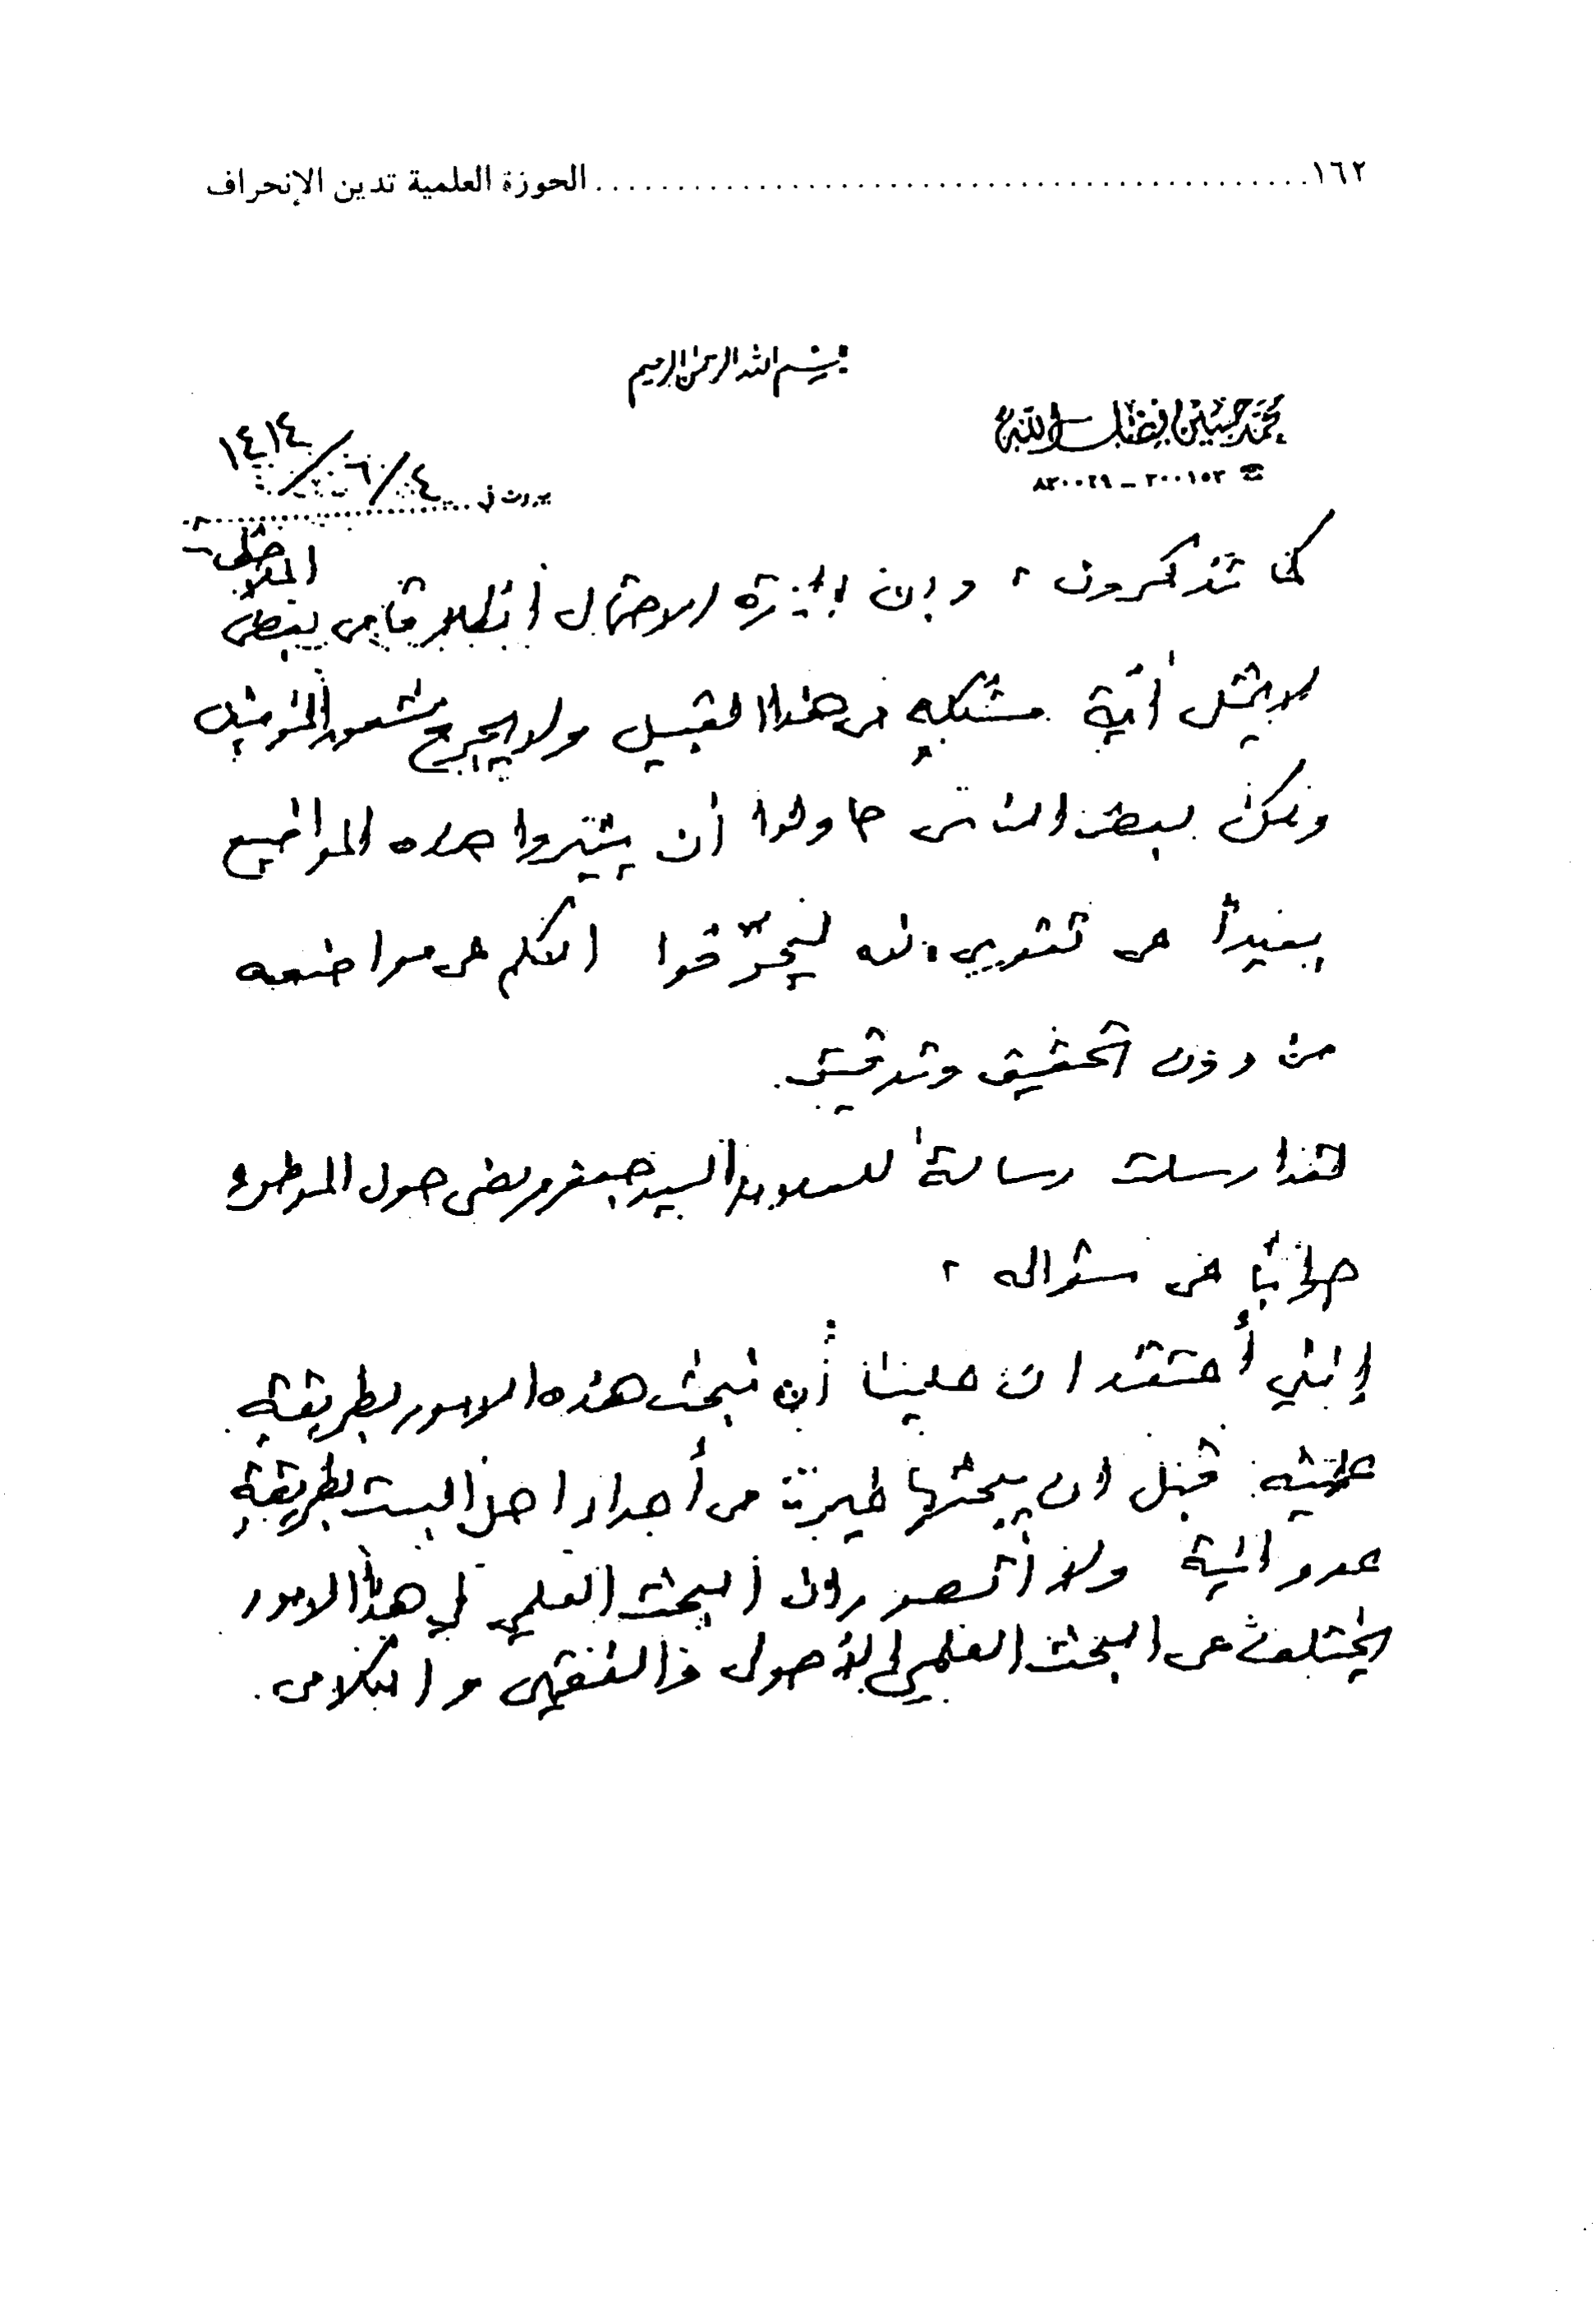 ١٦٢ ........................................ الحوزة العلمية تدين الإنحراف
بسم الله الرحمن الرحيم
محمد حسين فضل الله
☎ ٢٠٠١٥٣ – ٨٣٠٠٢٩
بيروت في ٤/٦/١٤١٤
كما تذكرون، وان اثارة الاحتمال انطلاقاً من بعض الملاحظات
لا يمثل أية مشكلة من هذا القبيل ولا يجرح شعور المؤمنين
ولكن بعض الناس حاولوا أن يثيروا هذه المواضيع
بعيداً عن تقوى الله ليحرّفوا الكلم عن مواضعه
من دون تحقيق وتدقيق.
لقد ارسلت رسالة للعلامة السيد جعفر مرتضى حول الموضوع
جواباً عن سؤاله،
إنني أعتقد ان علينا أن نبحث هذه الامور بطريقة
علمية قبل ان يبحثها غيرنا من أعداء اهل البيت بطريقة
عدوانية ولا أتصور ان البحث العلمي في هذا الامور
يختلف عن البحث العلمي في الأصول والفقه والكلام.